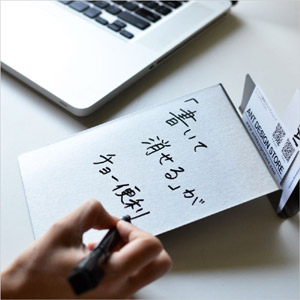 「書いて
消せる」が
チョー便利
ANT DESIGN STORE